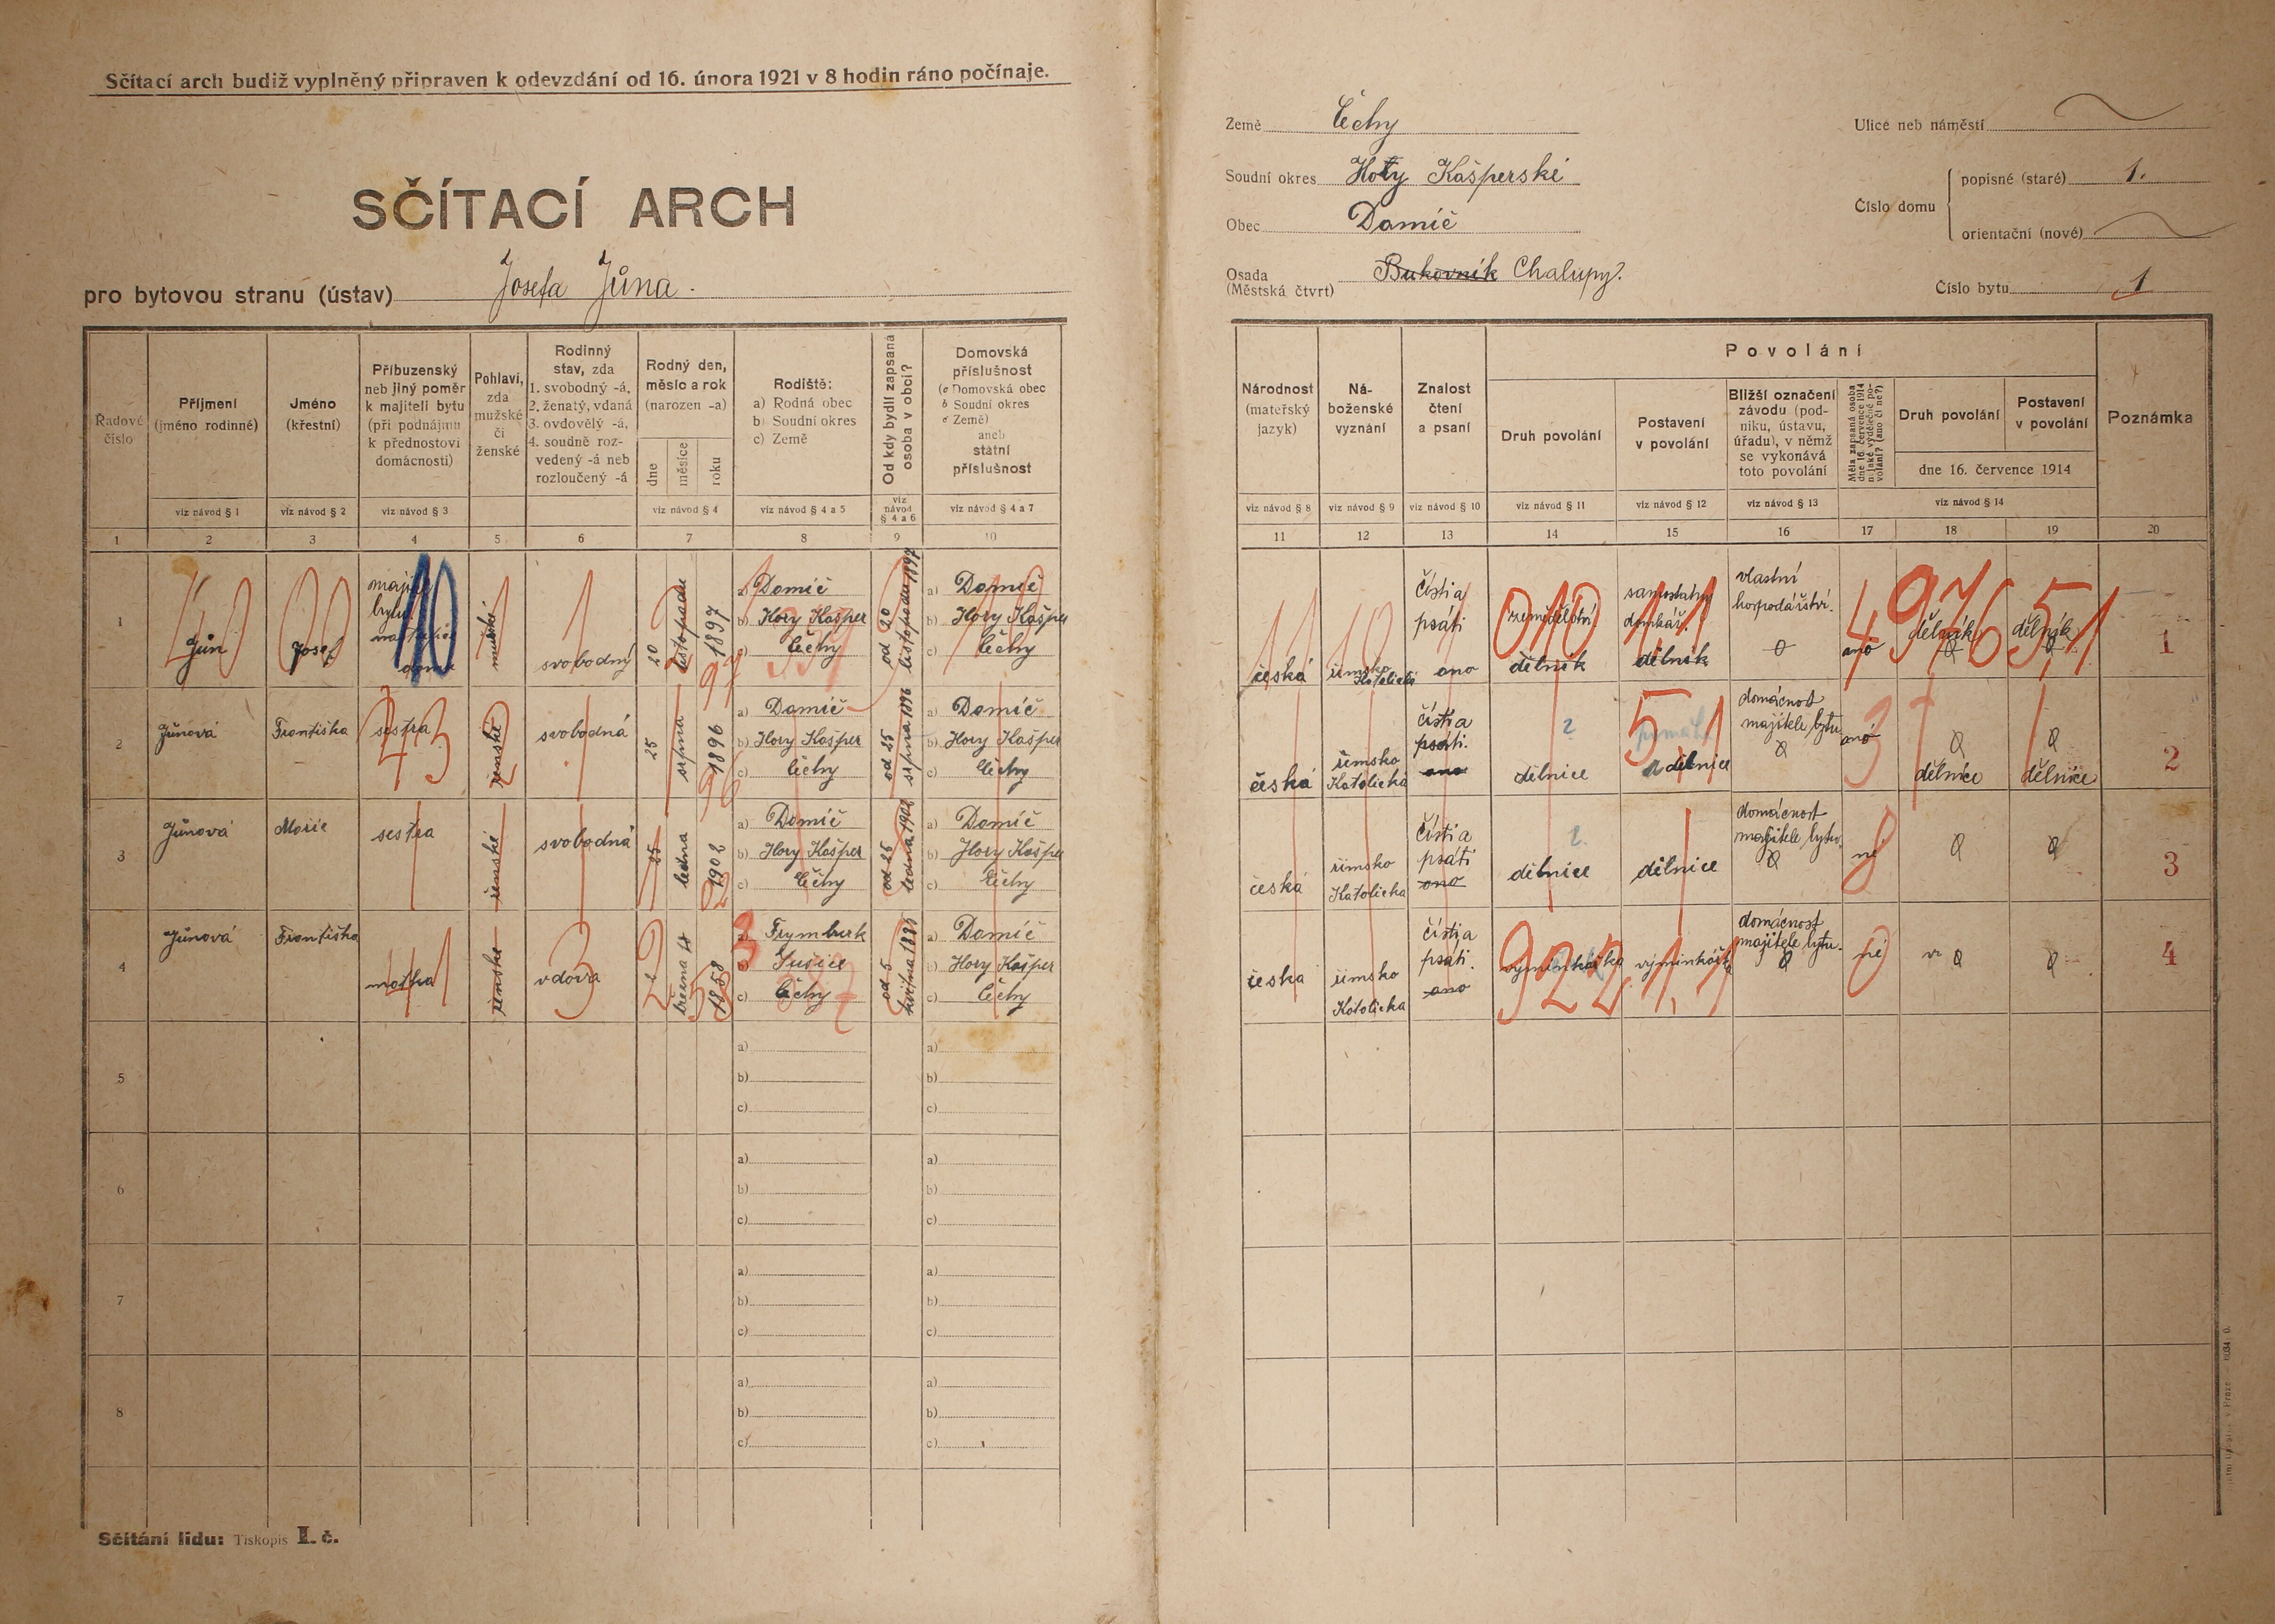 Sčítací arch budiž vyplněný připraven k odevzdání od 16. února 1921 v 8 hodin ráno počínaje.
SČÍTACÍ ARCH
pro bytovou stranu (ústav) Josefa Jůna.
Země Čechy
Soudní okres Hory Kašperské
Obec Damíč
Osada (Městská čtvrt) Bukovník Chalupy.
Ulice neb náměstí
Číslo domu
popisné (staré) 1.
orientační (nové)
Číslo bytu 1
Řadové číslo
Příjmení (jméno rodinné)
Jméno (křestní)
Příbuzenský neb jiný poměr k majiteli bytu (při podnájmu k přednostovi domácnosti)
Pohlaví, zda mužské či ženské
Rodinný stav, zda 1. svobodný -á, 2. ženatý, vdaná 3. ovdovělý -á, 4. soudně rozvedený -á neb rozloučený -á
Rodný den, měsíc a rok (narozen -a)
dne
měsíce
roku
Rodiště:
a) Rodná obec
b) Soudní okres
c) Země
Od kdy bydlí zapsaná osoba v obci?
Domovská příslušnost
(a Domovská obec
b Soudní okres
c Země)
aneb státní příslušnost
viz návod § 1
viz návod § 2
viz návod § 3
viz návod § 4
viz návod § 4 a 5
viz návod § 4 a 6
viz návod § 4 a 7
1 2 3 4 5 6 7 8 9 10
Národnost (mateřský jazyk)
Náboženské vyznání
Znalost čtení a psaní
Povolání
Druh povolání
Postavení v povolání
Bližší označení závodu (podniku, ústavu, úřadu), v němž se vykonává toto povolání
Měla zapsaná osoba dne 16. července 1914 nějaké výdělečné povolání? (ano či ne?)
Druh povolání
Postavení v povolání
dne 16. července 1914
Poznámka
viz návod § 8
viz návod § 9
viz návod § 10
viz návod § 11
viz návod § 12
viz návod § 13
viz návod § 14
11 12 13 14 15 16 17 18 19 20
1 Jůn Josef mužské svobodný 20 listopadu 1897
a) Damíč
b) Hory Kašper
c) Čechy
od 20 listopadu 1897
a) Damíč
b) Hory Kašper
c) Čechy
česká římsko Katolická
čísti a psáti ano
zemědělství dělník
samostatný domkář. dělník
vlastní hospodářství.
ano dělník dělník 1
2 Jůnová Františka sestra ženské svobodná 25 srpna 1896
a) Damíč
b) Hory Kašper
c) Čechy
od 25 srpna 1896
a) Damíč
b) Hory Kašper
c) Čechy
česká římsko Katolická
čísti a psáti. ano
dělnice dělnice
domácnost majitele bytu
ano dělnice dělnice 2
3 Jůnová Marie sestra ženské svobodná 25 ledna 1902
a) Damíč
b) Hory Kašper
c) Čechy
od 25 ledna 1902
a) Damíč
b) Hory Kašper
c) Čechy
česká římsko Katolická
čísti a psáti ano
dělnice dělnice
domácnost majitele bytu
ne 3
4 Jůnová Františka matka ženské vdova března 1858
a) Frymburk
b) Sušice
c) Čechy
od 5 května
a) Damíč
b) Hory Kašper
c) Čechy
česka římsko Katolicka
čísti a psáti. ano
výminkářka výminkářka
domácnost majitele bytu.
ne 4
5
a)
b)
c)
a)
b)
c)
6
a)
b)
c)
a)
b)
c)
7
a)
b)
c)
a)
b)
c)
8
a)
b)
c)
a)
b)
c)
Sčítání lidu: Tiskopis I. č.